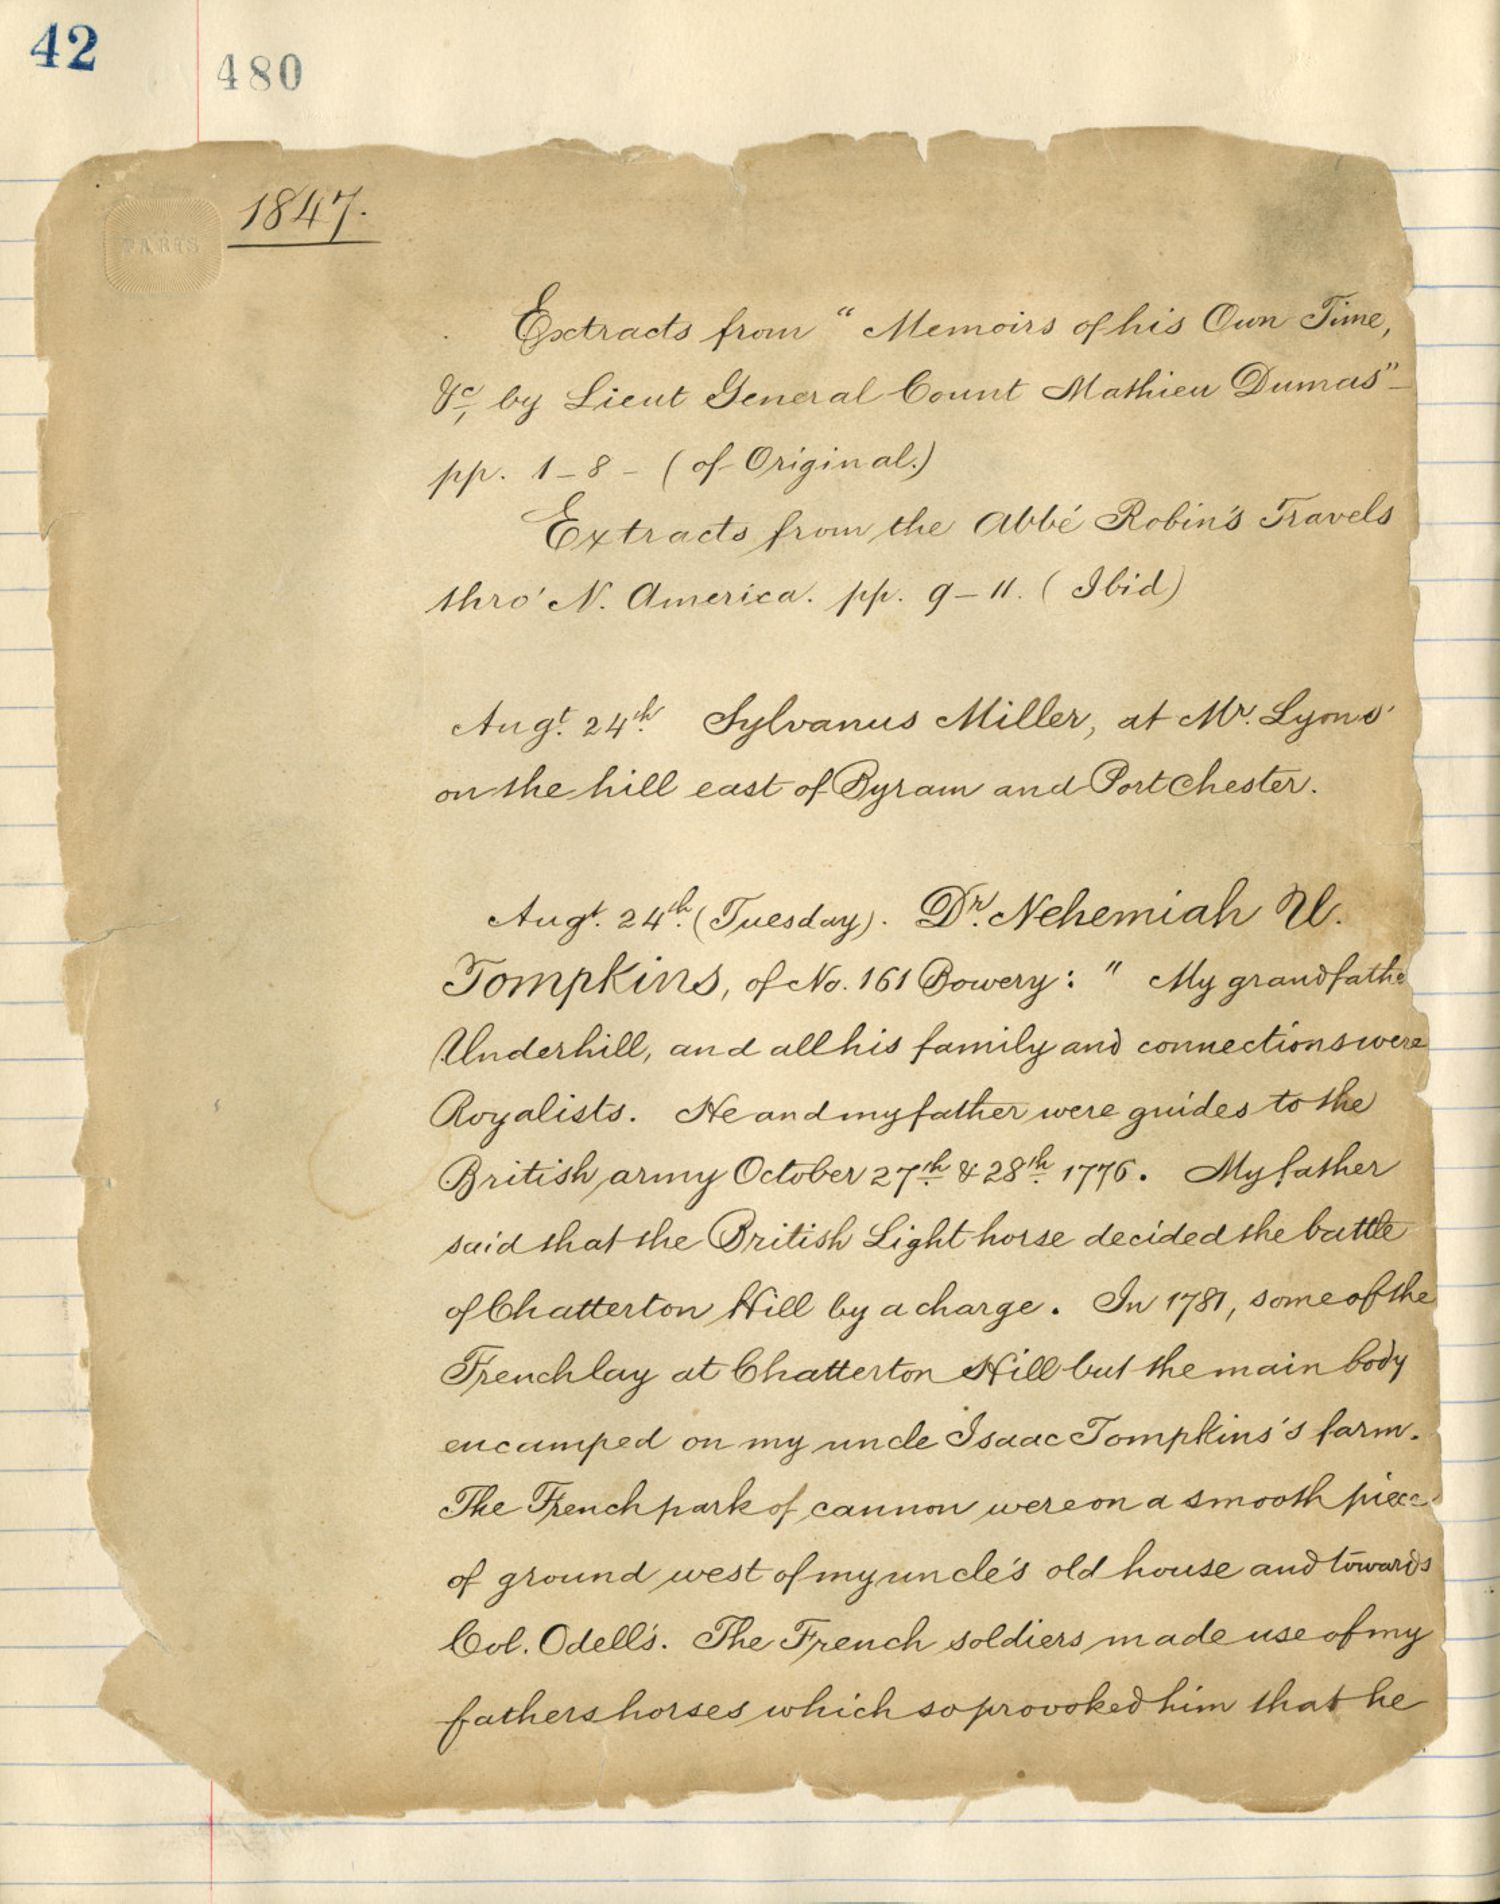 42
480
PARIS
1847.
Extracts from "Memoirs of his Own Time,
&c, by Lieut General Count Mathieu Dumas" –
pp. 1 – 8 – (of Original.)
Extracts from the Abbé Robin's Travels
thro' N. America. pp. 9 – 11. (Ibid)
Augt. 24th. Sylvanus Miller, at Mr. Lyons'
on the hill east of Byram and Portchester.
Augt. 24th. (Tuesday). Dr. Nehemiah U.
Tompkins, of No. 161 Bowery: " My grandfathe
Underhill, and all his family and connections were
Royalists. He and my father were guides to the
British army October 27th. & 28th. 1776. My father
said that the British Light horse decided the battle
of Chatterton Hill by a charge. In 1781, some of the
French lay at Chatterton Hill but the main body
encamped on my uncle Isaac Tompkins's farm.
The French park of cannon were on a smooth piece
of ground west of my uncle's old house and towards
Col. Odell's. The French soldiers made use of my
fathers horses which so provoked him that he